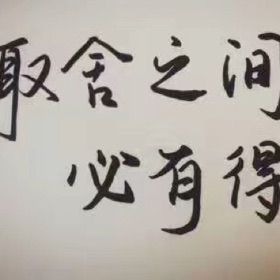 取舍之间
必有得